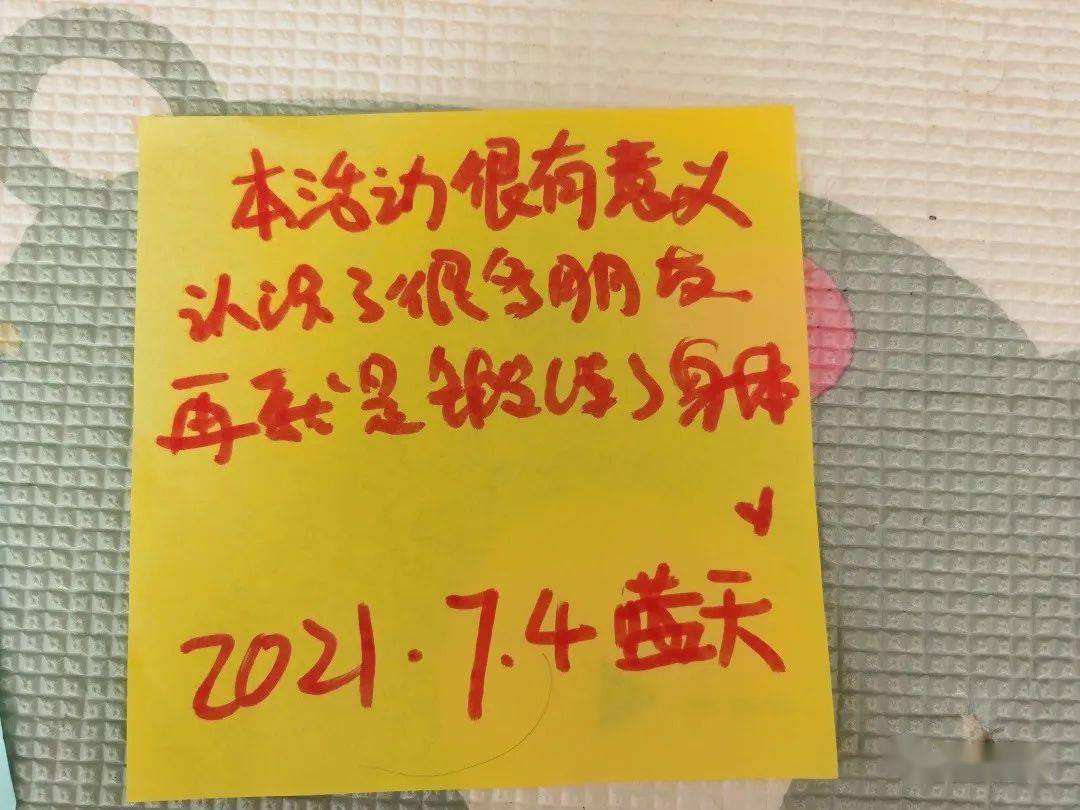 本活动很有意义
认识了很多朋友
再就是锻练了身体
2021.7.4 蓝天